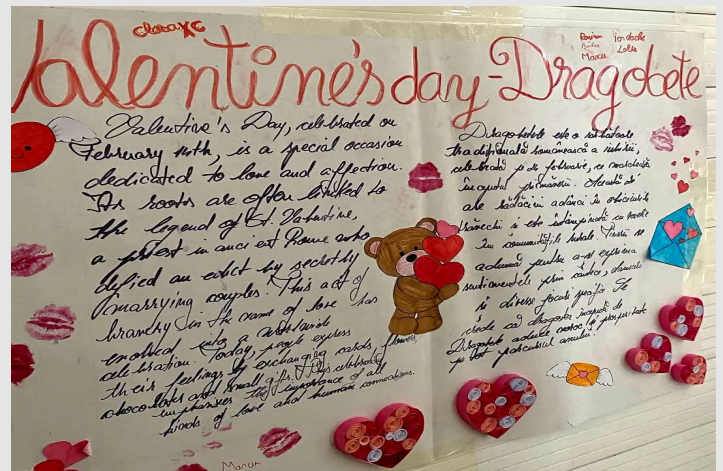 clasa X C
Valentine's day - Dragobete
Valentine's Day, celebrated on
February 14th, is a special occasion
dedicated to love and affection.
Its roots are often linked to
the legend of St. Valentine,
a priest in ancient Rome who
defied an edict by secretly
marrying couples. This act of
bravery in the name of love has
evolved into a worldwide
celebration. Today, people express
their feelings by exchanging cards, flowers,
chocolates and small gifts. This celebration
emphasizes the importance of all
kinds of love and human connections.
Dragobetele este o sărbătoare
tradițională românească a iubirii,
celebrată pe 24 februarie, ce marchează
începutul primăverii. Această zi
are rădăcini adânci în obiceiurile
străvechi și este întâmpinată cu
în comunitățile rurale. Tinerii se
adună pentru a-și exprima
sentimentele prin cântece, dansuri
și diverse jocuri specifice. Se
crede că dragostea începută de
Dragobete aduce noroc și prosperitate
pe tot parcursul anului.
Marcu